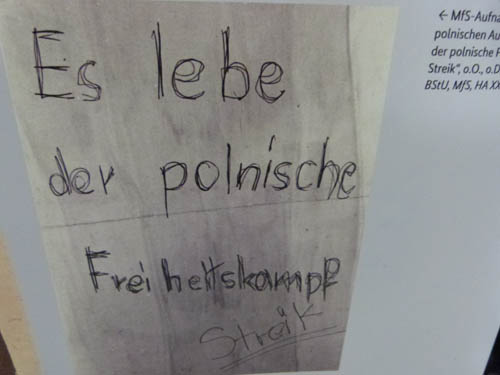 Es lebe
der polnische
Freiheitskampf
Streik
← MfS-Aufna
polnischen Au
der polnische F
Streik“, o.O., o.D
BStU, MfS, HA XX